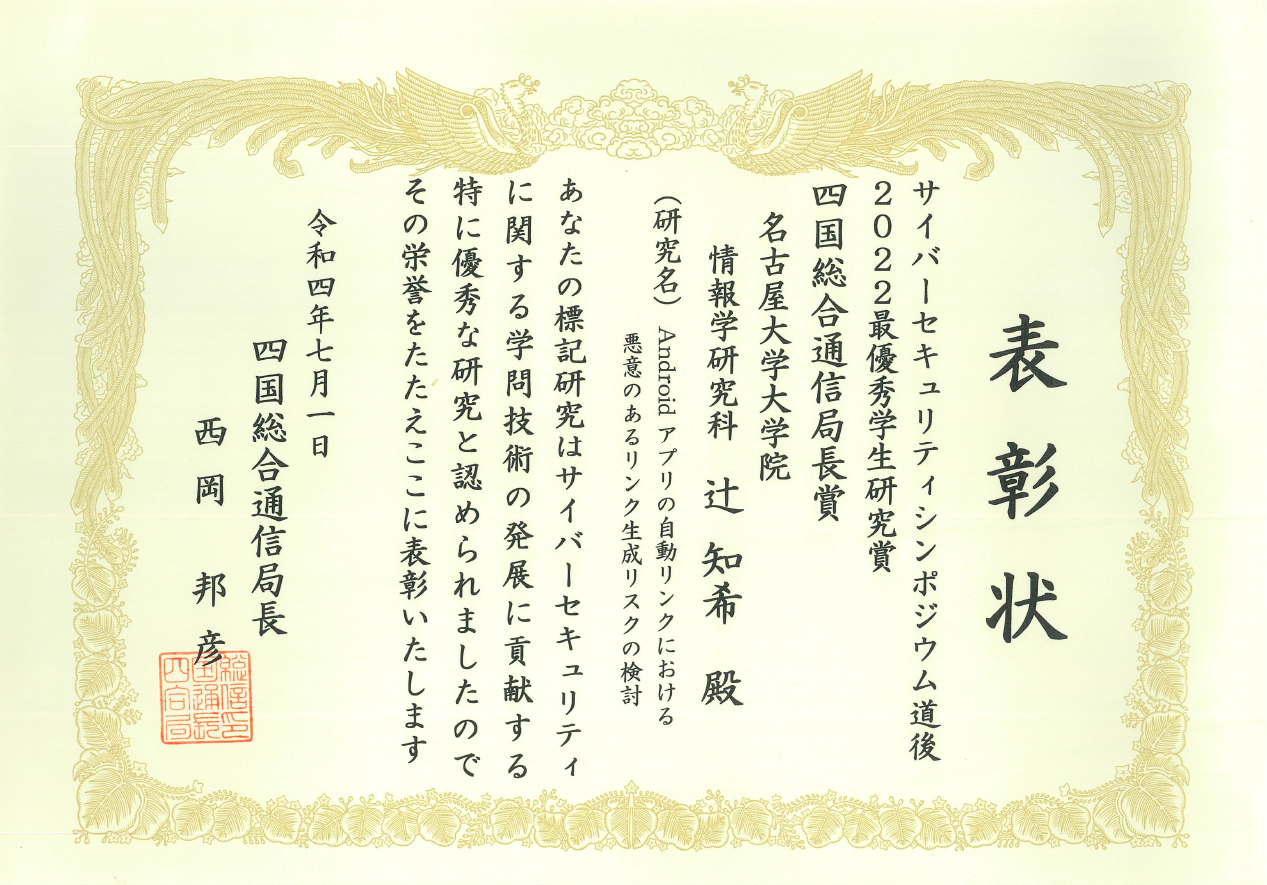 表彰状
サイバーセキュリティシンポジウム道後
2022最優秀学生研究賞
四国総合通信局長賞
名古屋大学大学院
情報学研究科 辻 知希 殿
(研究名) Android アプリの自動リンクにおける
悪意のあるリンク生成リスクの検討
あなたの標記研究はサイバーセキュリティ
に関する学問技術の発展に貢献する
特に優秀な研究と認められましたので
その栄誉をたたえここに表彰いたします
令和四年七月一日
四国総合通信局長
西岡 邦彦